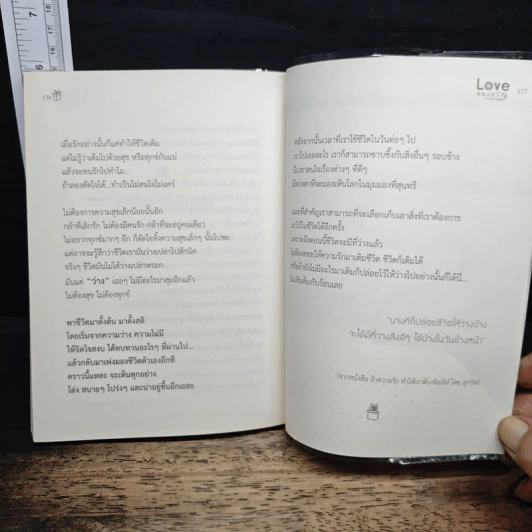 7
18
17
16
176
เมื่อรักอย่างนั้นก็แค่ทำให้ชีวิตเต็ม
แต่ไม่รู้ว่าเต็มไปด้วยสุข หรือทุกข์กันแน่
แล้วจะทนรักไปทำไม...
ถ้าลองตัดใจได้...ทำเป็นไม่สนใจไม่แคร์
ไม่ต้องการความสุขเล็กน้อยนั้นอีก
กล้าที่เลิกรัก ไม่ต้องมีคนรัก กล้าที่จะอยู่คนเดียว
ไม่อยากทุกข์มากๆ อีก ก็ตัดใจทิ้งความสุขเล็กๆ นั้นไปซะ
แต่อาจจะรู้สึกว่าชีวิตเรามันว่างเปล่าไปสักนิด
จริงๆ ชีวิตมันไม่ได้ว่างเปล่าหรอก
มันแค่ "ว่าง" เฉยๆ ไม่มีอะไรมาสุมอีกแล้ว
ไม่ต้องสุข ไม่ต้องทุกข์
พาชีวิตมาตั้งต้น มาตั้งสติ
โดยเริ่มจากความว่าง ความไม่มี
ให้จิตใจสงบ ได้ทบทวนอะไรๆ ที่ผ่านไป...
แล้วกลับมาเพ่งมองชีวิตตัวเองอีกที
คราวนี้แหละ จะเห็นทุกอย่าง
โล่ง สบายๆ โปร่งๆ และน่าอยู่ขึ้นอีกเยอะ
Love
ของขวัญ
177
หลังจากนั้นเวลาที่เราใช้ชีวิตในวันต่อๆ ไป
เราไปเจออะไร เราก็สามารถซาบซึ้งกับสิ่งอื่นๆ รอบข้าง
มีเวลาสนใจเรื่องต่างๆ ที่ดีๆ
มีดวงตาที่จะมองเห็นโลกในมุมมองที่สุนทรี
และที่สำคัญเราสามารถที่จะเลือกเก็บเอาสิ่งที่เราต้องการ
มาไว้ในชีวิตได้อีกครั้ง
เพราะถึงตอนนี้ชีวิตจะมีที่ว่างแล้ว
ไม่ต้องคอยให้ความรักมาเติมชีวิต ชีวิตก็เต็มได้
หรือถ้ายังไม่มีอะไรมาเติมก็ปล่อยไว้ให้ว่างไปอย่างนั้นก็ได้นี่...
ไม่เห็นต้องรีบร้อนเลย
"บางทีก็ปล่อยชีวิตให้ว่างบ้าง
จะได้มีที่ว่างสิ่งดีๆ ได้บ้างในวันข้างหน้า"
(จากหนังสือ ถ้าความรัก ทำให้เราต้องร้องไห้ โดย